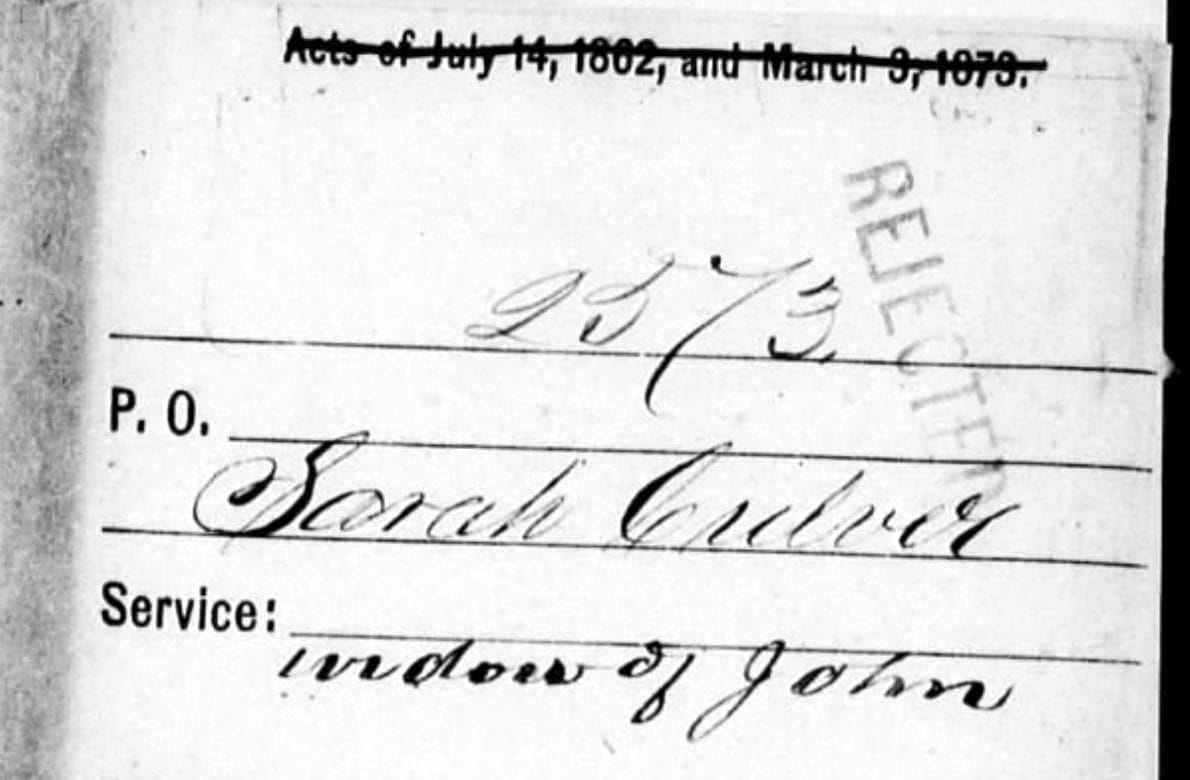 Acts of July 14, 1862, and March 3, 1873.
REJECTED
2573
P. O.
Sarah Culver
Service:
widow of John